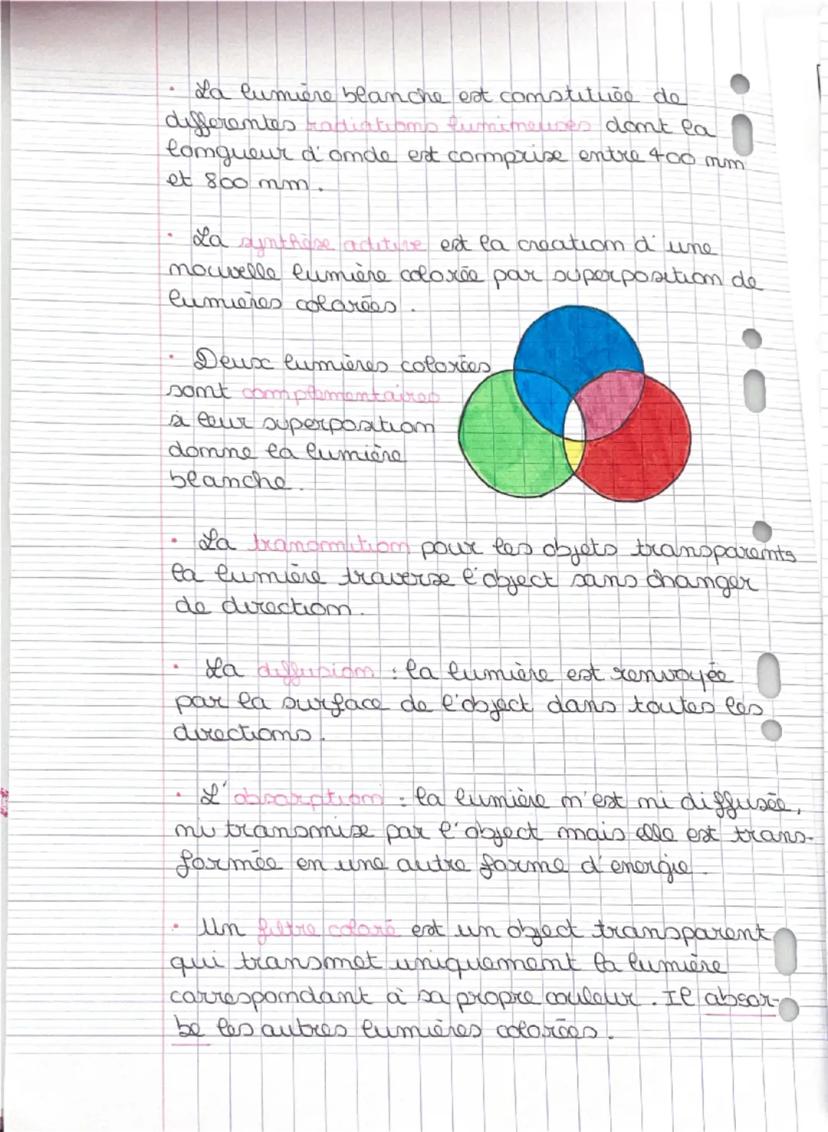 · La lumière blanche est constituée de
differentes radiations lumineuses dont la
longueur d'onde est comprise entre 400 nm
et 800 nm.
· La synthèse aditive est la creation d'une
nouvelle lumière colorée par superposition de
lumières colorées.
· Deux lumières colorées
sont complementaires
si leur superposition
donne la lumière
blanche.
· La transmition pour les objets transparents
la lumière traverse l'object sans changer
de direction.
· La diffusion : la lumière est renvoyée
par la surface de l'object dans toutes les
directions.
· L'absorption : la lumière n'est ni diffusée,
ni transmise par l'object mais elle est trans-
formée en une autre forme d'energie.
· Un filtre coloré est un object transparent
qui transmet uniquement la lumière
correspondant à sa propre couleur. Il absor-
be les autres lumières colorées.